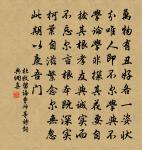 萬物有丑好各一姿狀
分唯人即不尔學與不
學論學非探其花要自
撥其根孝友與誠實而
不忘尔言根本既深實
柯葉自滋繁念尔無忽
此期以慶吾門
杜牧留誨曹師等詩